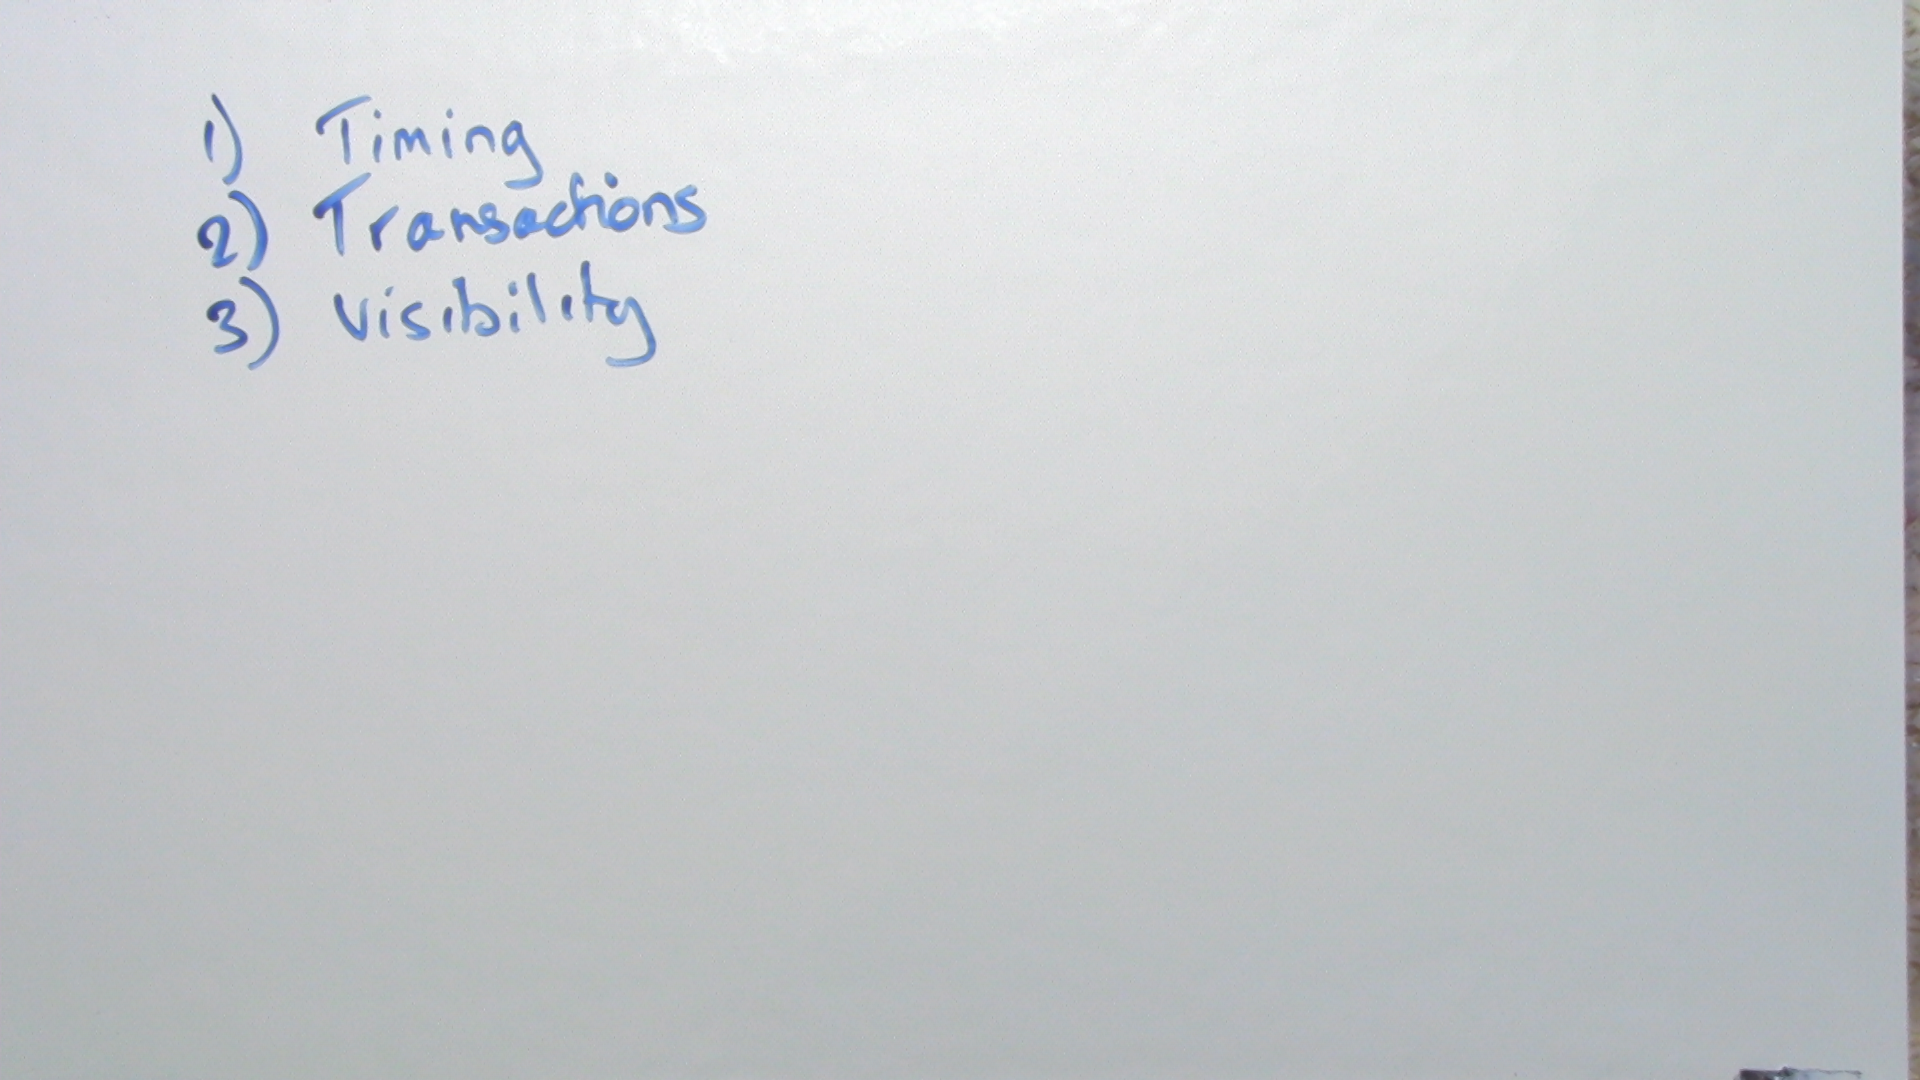 1) Timing
2) Transactions
3) Visibility